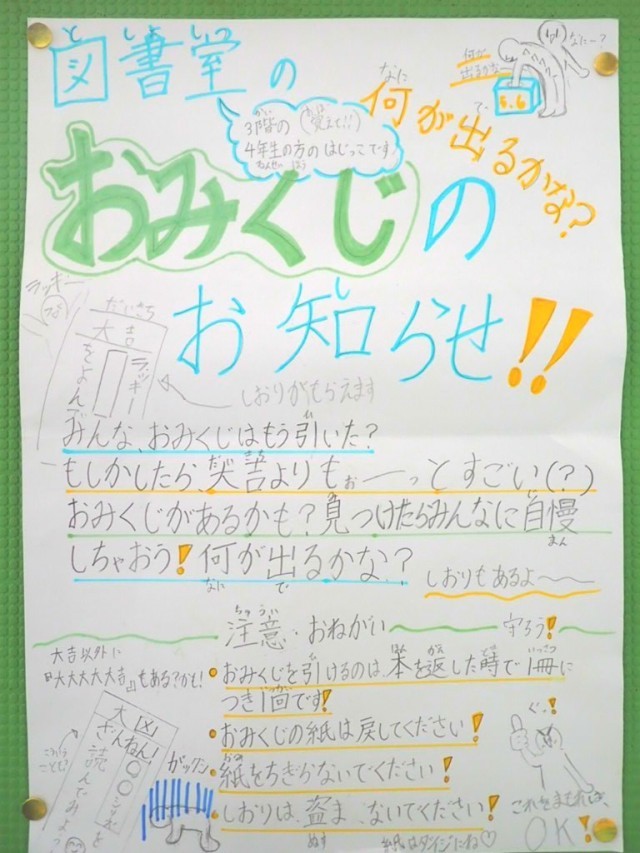 図書室の
としょしつ
3階の(覚えて!!)
4年生の方のはじっこです
何が出るかな?
なに で
何が
出るかな~
なに~?
おみくじの
お知らせ!!
し
ラッキー
だいきち
大吉
ラッキー
をよんで
しおりがもらえます
みんな、おみくじはもう引いた?
もしかしたら、大吉よりもぉーっとすごい(?)
おみくじがあるかも?見つけたらみんなに自慢
しちゃおう!何が出るかな?
なに で
まん
しおりもあるよ~
ちゅうい
注意・おねがい
守ろう!
大吉以外に
『大大大大大吉』もある?かも!
おみくじを引けるのは、本を返した時で1冊に
つき1回です!
おみくじの紙は戻してください!
紙をちぎらないでください!
しおりは、盗まないでください!
ぬす
紙はダイジにね♡
大凶
ざんねん!
を
読んでみよう
ガックシ
ぐっ!
これをまもれば、
OK!